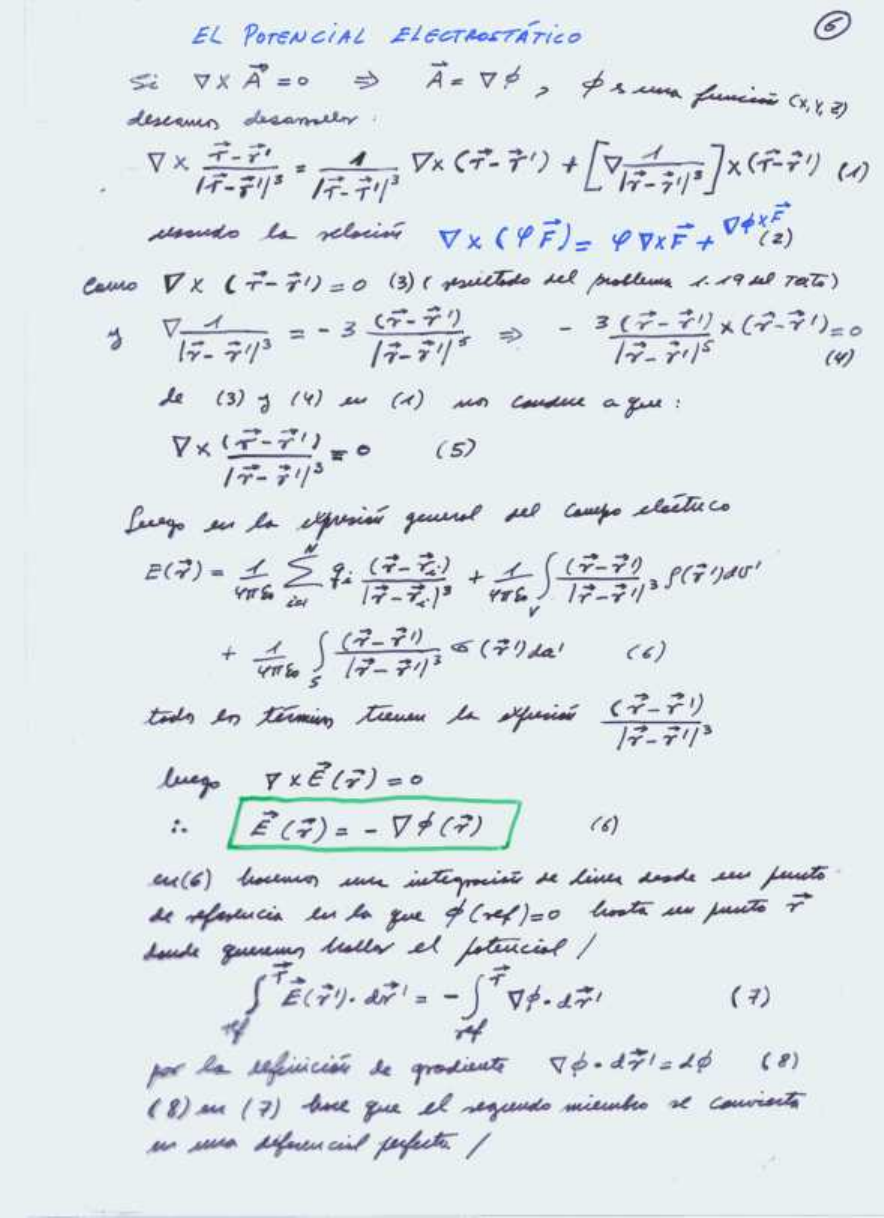 EL POTENCIAL ELECTROSTÁTICO
6
Si ∇ x A⃗ = 0 ⇒ A⃗ = ∇φ , φ es una función (x, y, z)
deseamos desarrollar :
∇ × (r⃗-r⃗')/|r⃗-r⃗'|³ = 1/|r⃗-r⃗'|³ ∇x (r⃗-r⃗') + [∇ 1/|r⃗-r⃗'|³] x (r⃗-r⃗') (1)
usando la relación ∇ x (φF⃗) = φ ∇xF⃗ + ∇φxF⃗ (2)
Como ∇ x (r⃗-r⃗') = 0 (3) ( resultado del problema 1.19 del Texto)
y ∇ 1/|r⃗-r⃗'|³ = - 3 (r⃗-r⃗')/|r⃗-r⃗'|⁵ ⇒ - 3 (r⃗-r⃗')/|r⃗-r⃗'|⁵ x (r⃗-r⃗') = 0 (4)
de (3) y (4) en (1) nos conduce a que :
∇ x (r⃗-r⃗')/|r⃗-r⃗'|³ = 0 (5)
Luego en la expresión general del campo eléctrico
E(r⃗) = 1/4πε₀ ∑_{i=1}^{N} qᵢ (r⃗-r⃗ᵢ)/|r⃗-r⃗ᵢ|³ + 1/4πε₀ ∫_V (r⃗-r⃗')/|r⃗-r⃗'|³ ρ(r⃗')dv'
+ 1/4πε₀ ∫_S (r⃗-r⃗')/|r⃗-r⃗'|³ σ(r⃗')da' (6)
todos los términos tienen la expresión (r⃗-r⃗')/|r⃗-r⃗'|³
luego ∇ x E⃗(r⃗) = 0
∴ E⃗(r⃗) = - ∇φ(r⃗) (6)
en (6) hacemos una integración de línea desde un punto
de referencia en la que φ(ref)=0 hasta un punto r⃗
donde queremos hallar el potencial /
∫_{ref}^{r⃗} E⃗(r⃗') · dr⃗' = - ∫_{ref}^{r⃗} ∇φ · dr⃗' (7)
por la definición de gradiente ∇φ · dr⃗' = dφ (8)
(8) en (7) hace que el segundo miembro se convierta
en una diferencial perfecta /